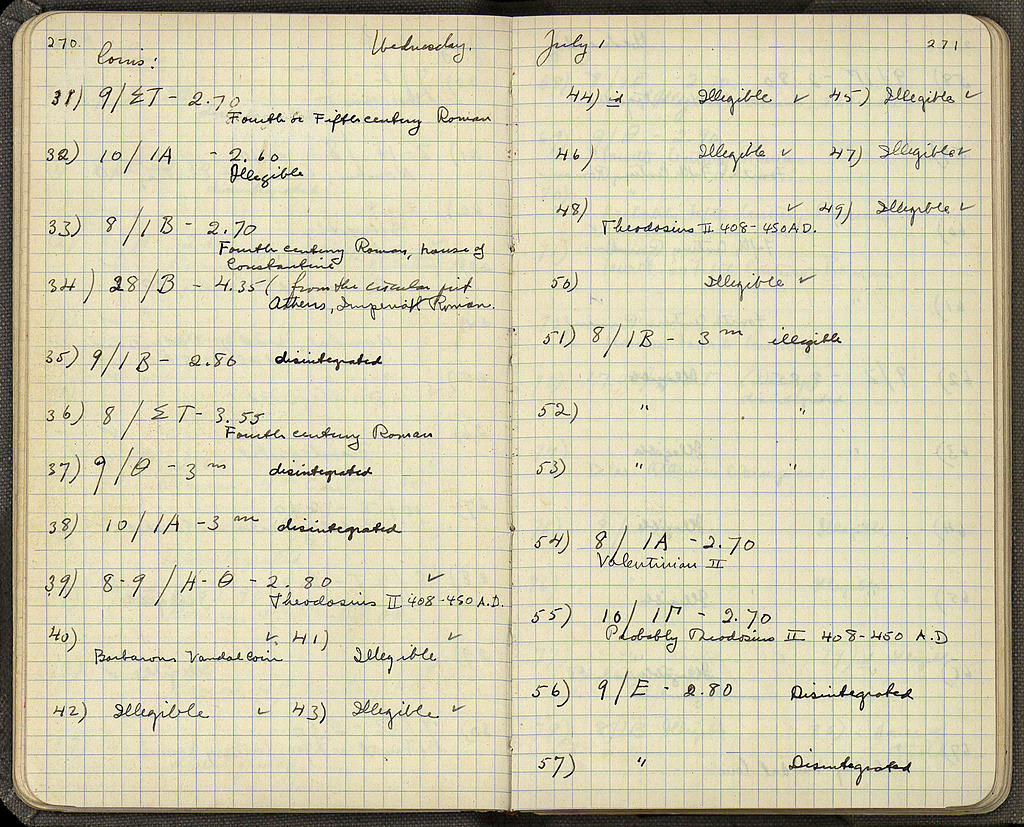 270. Wednesday.
Coins:
31) 9/ΣT - 2.70
Fourth or Fifth century Roman
32) 10/1A - 2.60
Illegible
33) 8/1B - 2.70
Fourth century Roman, house of
Constantine
34) 28/B - 4.35 ( from the circular pit
Athens, Imperial Roman.
35) 9/1B - 2.80 disintegrated
36) 8/ΣT - 3.55
Fourth century Roman
37) 9/Θ - 3 m disintegrated
38) 10/1A - 3 m disintegrated
39) 8-9/H-Θ - 2.80 ✓
Theodosius II 408-450 A.D.
40) ✓ 41) ✓
Barbarous Vandal coin Illegible
42) Illegible ✓ 43) Illegible ✓
July 1 271
44) id Illegible ✓ 45) Illegible ✓
46) Illegible ✓ 47) Illegible ✓
48) ✓ 49) Illegible ✓
Theodosius II 408-450 A.D.
50) Illegible ✓
51) 8/1B - 3 m illegible
52) " "
53) " "
54) 8/1A - 2.70
Valentinian II
55) 10/1Γ - 2.70
Probably Theodosius II 408-450 A.D
56) 9/E - 2.80 Disintegrated
57) " Disintegrated